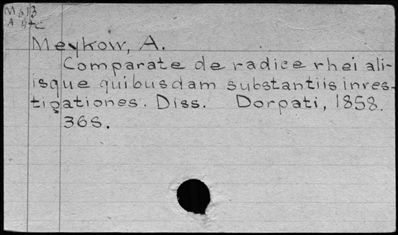 M 613
Meykow, A.
Comparate de radice rhei ali-
isque quibusdam substantiis inves-
tigationes. Diss. Dorpati, 1858.
36S.